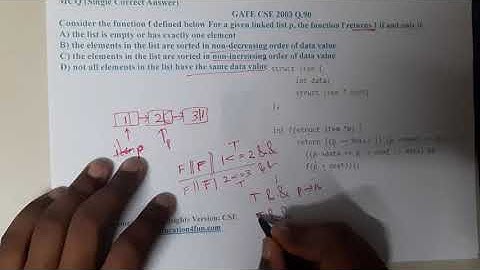 MCQ (Single Correct Answer)
GATE CSE 2003 Q.90
Consider the function f defined below For a given linked list p, the function f returns 1 if and only if
A) the list is empty or has exactly one element
B) the elements in the list are sorted in non-decreasing order of data value
C) the elements in the list are sorted in non-increasing order of data value
D) not all elements in the list have the same data value
struct item {
int data;
struct item * next;
};
int f(struct item *p) {
return ((p == NULL) || (p->next == NULL) ||
((p->data <= p->next->data) &&
f(p->next)));
}
1 → 2 → 3
p
p
T
F || F || 1 <= 2 &&
F || F || 2 <= 3 &&
T
T && p→n
Version: CSE